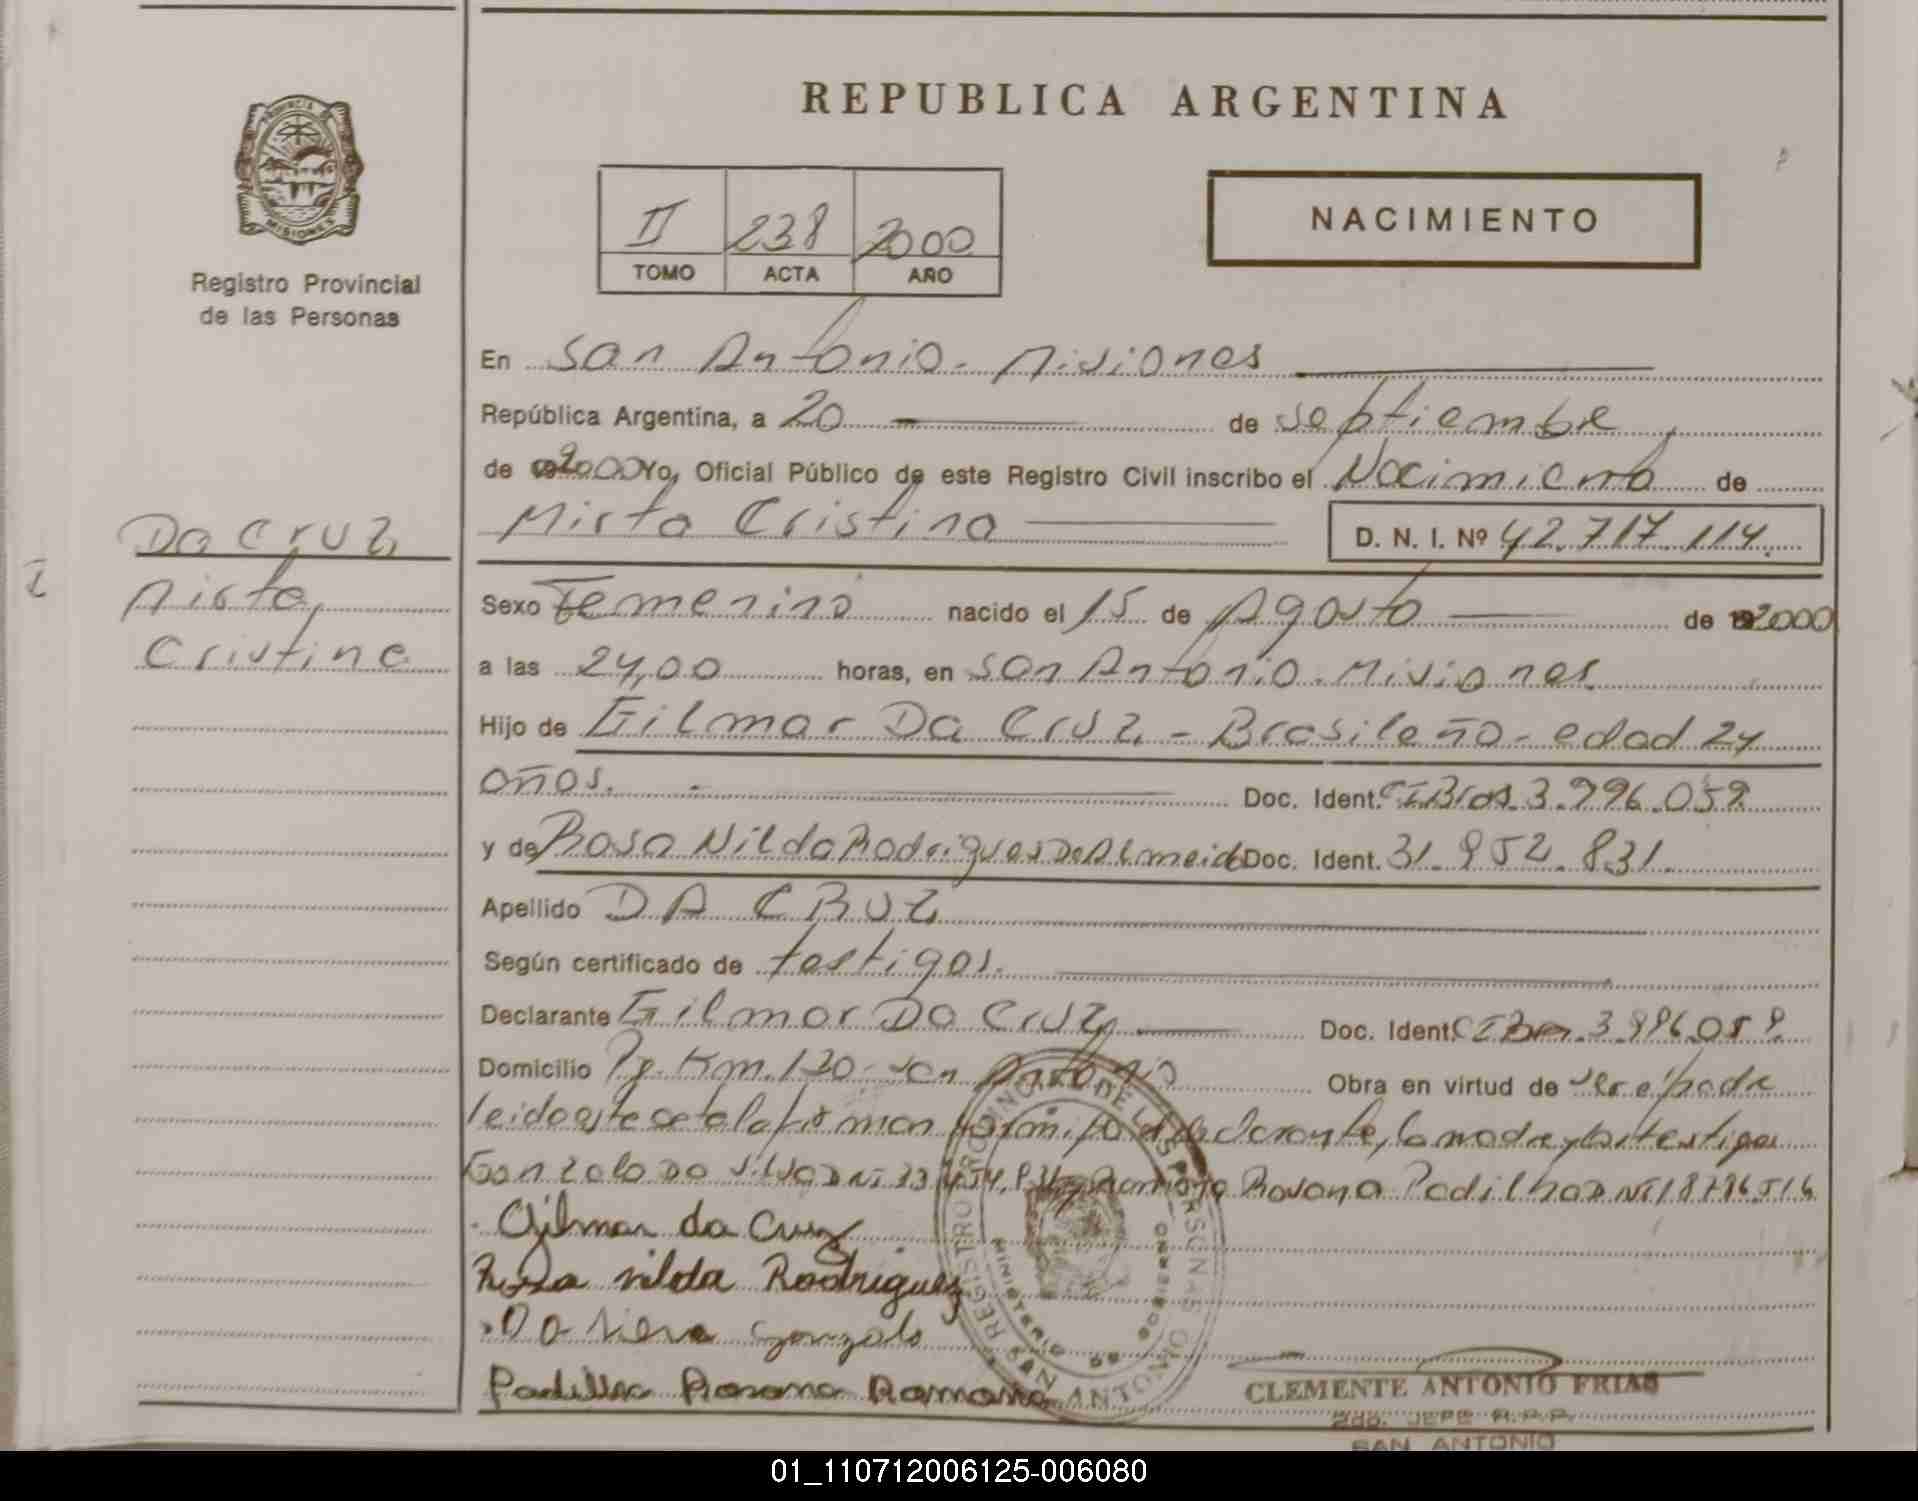 REPUBLICA ARGENTINA
PROVINCIA DE
MISIONES
Registro Provincial
de las Personas
II 238 2000
TOMO ACTA AÑO
NACIMIENTO
En San Antonio - Misiones
República Argentina, a 20 de septiembre
de 2000 Yo, Oficial Público de este Registro Civil inscribo el Nacimiento de
Mirta Cristina
D. N. I. Nº 42.717.114.
Da Cruz
Mirta
Cristina
Sexo Femenino nacido el 15 de Agosto de 2000
a las 24,00 horas, en San Antonio - Misiones.
Hijo de Gilmar Da Cruz - Brasileño - edad 24
años. - Doc. Ident. CIBras. 3.996.059
y de Rosa Nilda Rodrigues De Almeida Doc. Ident. 31.952.831.
Apellido DA CRUZ
Según certificado de testigos.
Declarante Gilmar Da Cruz Doc. Ident. CIBra. 3.996.059.
Domicilio Km. 120 - San Antonio Obra en virtud de ser el padre
leida este acta la firman conmigo el declarante, la madre y los testigos
Gonzalo Da Silva DNI Ramona Rosana Padilha DNI 18786516
Gilmar da Cruz
Rosa nilda Rodriguez
Da Gonzalo
Padilha Rosana Ramona
REGISTRO PROVINCIAL DE LAS PERSONAS
MINISTERIO DE GOBIERNO
SAN ANTONIO
CLEMENTE ANTONIO FRIAS
2do. JEFE R.P.P.
SAN ANTONIO
01_110712006125-006080